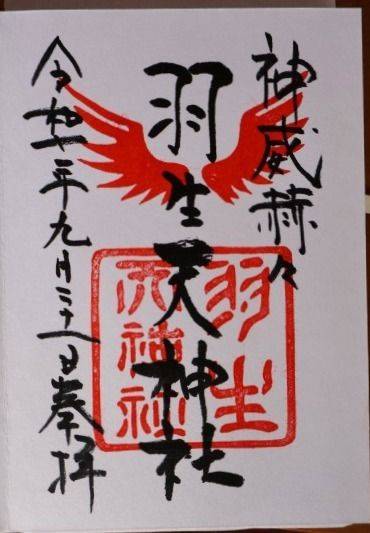 神威赫々
羽生天神社
令和二年九月二十一日奉拝
羽生
天神社